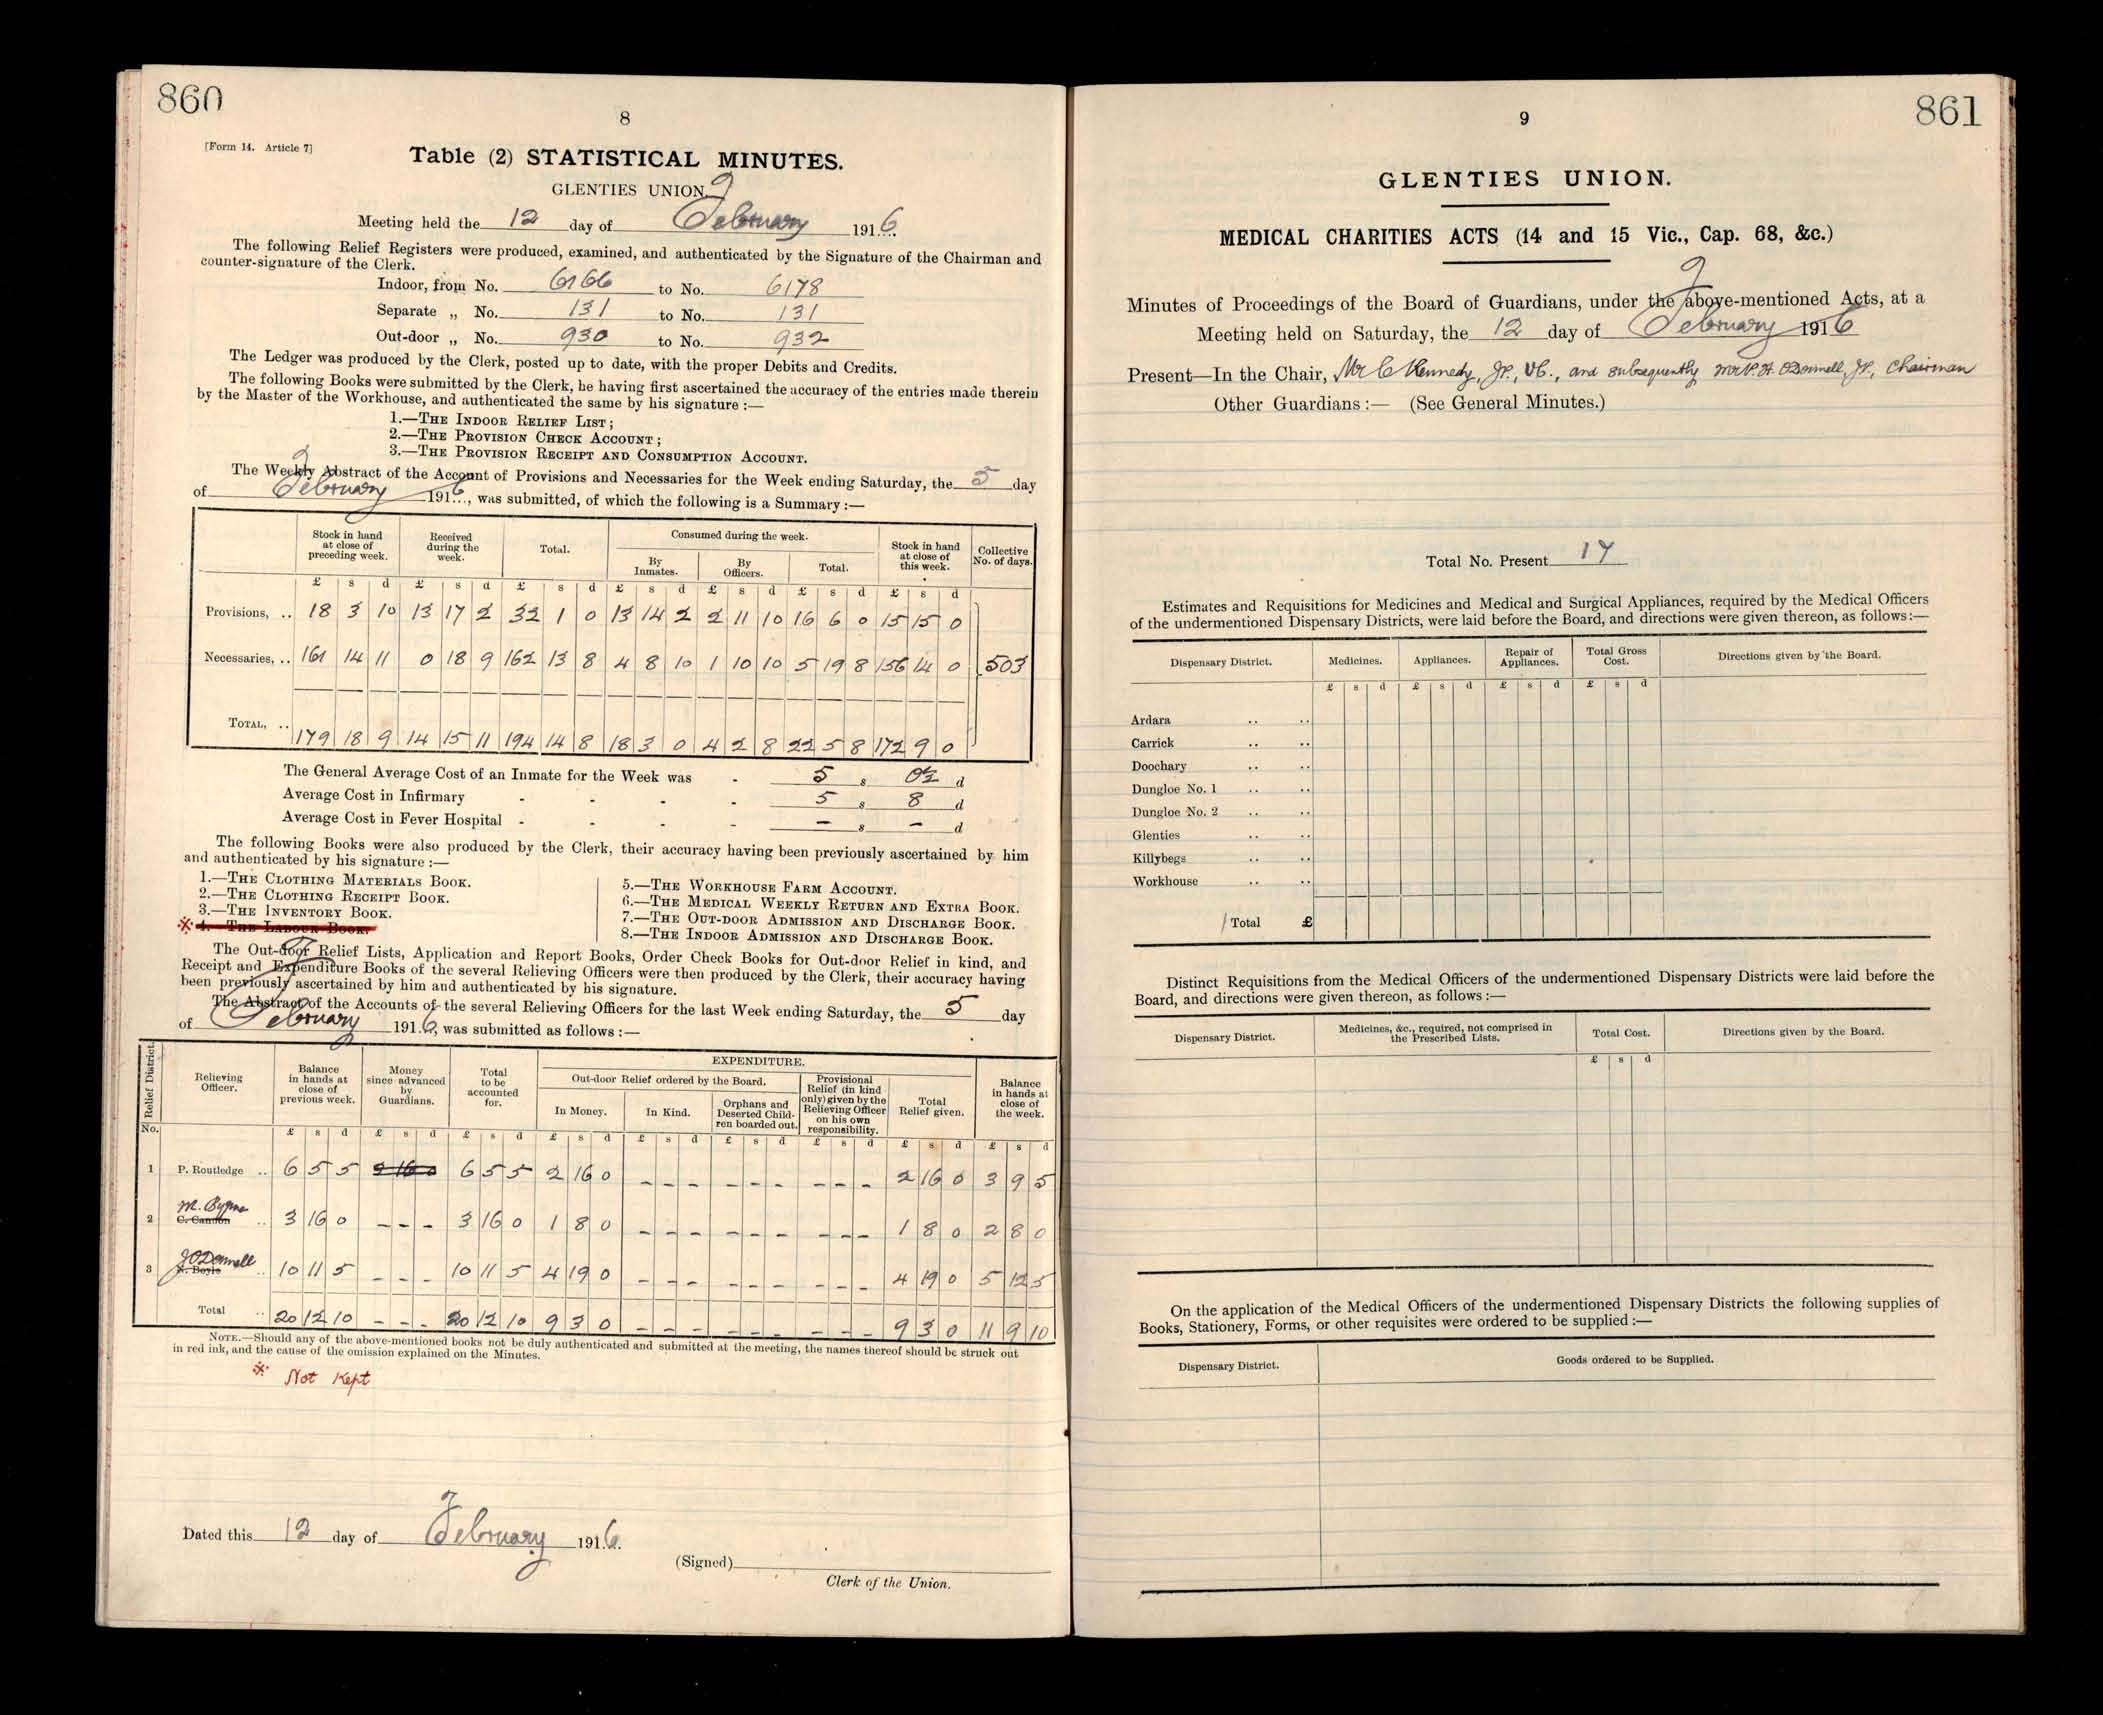 860
8
[Form 14. Article 7]
Table (2) STATISTICAL MINUTES.
GLENTIES UNION.
Meeting held the 12 day of February 1916.
The following Relief Registers were produced, examined, and authenticated by the Signature of the Chairman and
counter-signature of the Clerk.
Indoor, from No. 6166 to No. 6178
Separate „ No. 131 to No. 131
Out-door „ No. 930 to No. 932
The Ledger was produced by the Clerk, posted up to date, with the proper Debits and Credits.
The following Books were submitted by the Clerk, he having first ascertained the accuracy of the entries made therein
by the Master of the Workhouse, and authenticated the same by his signature :—
1.—THE INDOOR RELIEF LIST ;
2.—THE PROVISION CHECK ACCOUNT ;
3.—THE PROVISION RECEIPT AND CONSUMPTION ACCOUNT.
The Weekly Abstract of the Account of Provisions and Necessaries for the Week ending Saturday, the 5 day
of February 1916, was submitted, of which the following is a Summary :—
Stock in hand at close of preceding week. Received during the week. Total. Consumed during the week. By Inmates. By Officers. Total. Stock in hand at close of this week. Collective No. of days.
£ s d £ s d £ s d £ s d £ s d £ s d £ s d
Provisions, .. 18 3 10 13 17 2 32 1 0 13 14 2 2 11 10 16 6 0 15 15 0
Necessaries, .. 161 14 11 0 18 9 162 13 8 4 8 10 1 10 10 5 19 8 156 14 0 503
TOTAL, .. 179 18 9 14 15 11 194 14 8 18 3 0 4 2 8 22 5 8 172 9 0
The General Average Cost of an Inmate for the Week was - 5 s 0½ d
Average Cost in Infirmary - - - - 5 s 8 d
Average Cost in Fever Hospital - - - - – s – d
The following Books were also produced by the Clerk, their accuracy having been previously ascertained by him
and authenticated by his signature :—
1.—THE CLOTHING MATERIALS BOOK.
2.—THE CLOTHING RECEIPT BOOK.
3.—THE INVENTORY BOOK.
※ 4.—THE LABOUR BOOK.
5.—THE WORKHOUSE FARM ACCOUNT.
6.—THE MEDICAL WEEKLY RETURN AND EXTRA BOOK.
7.—THE OUT-DOOR ADMISSION AND DISCHARGE BOOK.
8.—THE INDOOR ADMISSION AND DISCHARGE BOOK.
The Out-door Relief Lists, Application and Report Books, Order Check Books for Out-door Relief in kind, and
Receipt and Expenditure Books of the several Relieving Officers were then produced by the Clerk, their accuracy having
been previously ascertained by him and authenticated by his signature.
The Abstract of the Accounts of the several Relieving Officers for the last Week ending Saturday, the 5 day
of February 1916, was submitted as follows :—
Relief District. No. Relieving Officer. Balance in hands at close of previous week. Money since advanced by Guardians. Total to be accounted for. EXPENDITURE. Out-door Relief ordered by the Board. In Money. In Kind. Orphans and Deserted Children boarded out. Provisional Relief (in kind only) given by the Relieving Officer on his own responsibility. Total Relief given. Balance in hands at close of the week.
£ s d £ s d £ s d £ s d £ s d £ s d £ s d £ s d £ s d
1 P. Routledge .. 6 5 5 2 16 0 6 5 5 2 16 0 – – – – – – – – – 2 16 0 3 9 5
M. Byrne
2 C. Cannon .. 3 16 0 – – – 3 16 0 1 8 0 – – – – – – – – – 1 8 0 2 8 0
J O'Donnell
3 Boyle .. 10 11 5 – – – 10 11 5 4 19 0 – – – – – – – – – 4 19 0 5 12 5
Total .. 20 12 10 – – – 20 12 10 9 3 0 – – – – – – – – – 9 3 0 11 9 10
NOTE.—Should any of the above-mentioned books not be duly authenticated and submitted at the meeting, the names thereof should be struck out
in red ink, and the cause of the omission explained on the Minutes.
※ Not Kept
Dated this 12 day of February 1916.
(Signed)
Clerk of the Union.
861
9
GLENTIES UNION.
MEDICAL CHARITIES ACTS (14 and 15 Vic., Cap. 68, &c.)
Minutes of Proceedings of the Board of Guardians, under the above-mentioned Acts, at a
Meeting held on Saturday, the 12 day of February 1916
Present—In the Chair, Mr C Kennedy, JP., VC., and subsequently Mr P. H. O'Donnell, JP., Chairman
Other Guardians :— (See General Minutes.)
Total No. Present 17
Estimates and Requisitions for Medicines and Medical and Surgical Appliances, required by the Medical Officers
of the undermentioned Dispensary Districts, were laid before the Board, and directions were given thereon, as follows :—
Dispensary District. Medicines. Appliances. Repair of Appliances. Total Gross Cost. Directions given by the Board.
£ s d £ s d £ s d £ s d
Ardara .. ..
Carrick .. ..
Doochary .. ..
Dungloe No. 1 .. ..
Dungloe No. 2 .. ..
Glenties .. ..
Killybegs .. ..
Workhouse .. ..
Total £
Distinct Requisitions from the Medical Officers of the undermentioned Dispensary Districts were laid before the
Board, and directions were given thereon, as follows :—
Dispensary District. Medicines, &c., required, not comprised in the Prescribed Lists. Total Cost. Directions given by the Board.
£ s d
On the application of the Medical Officers of the undermentioned Dispensary Districts the following supplies of
Books, Stationery, Forms, or other requisites were ordered to be supplied :—
Dispensary District. Goods ordered to be Supplied.